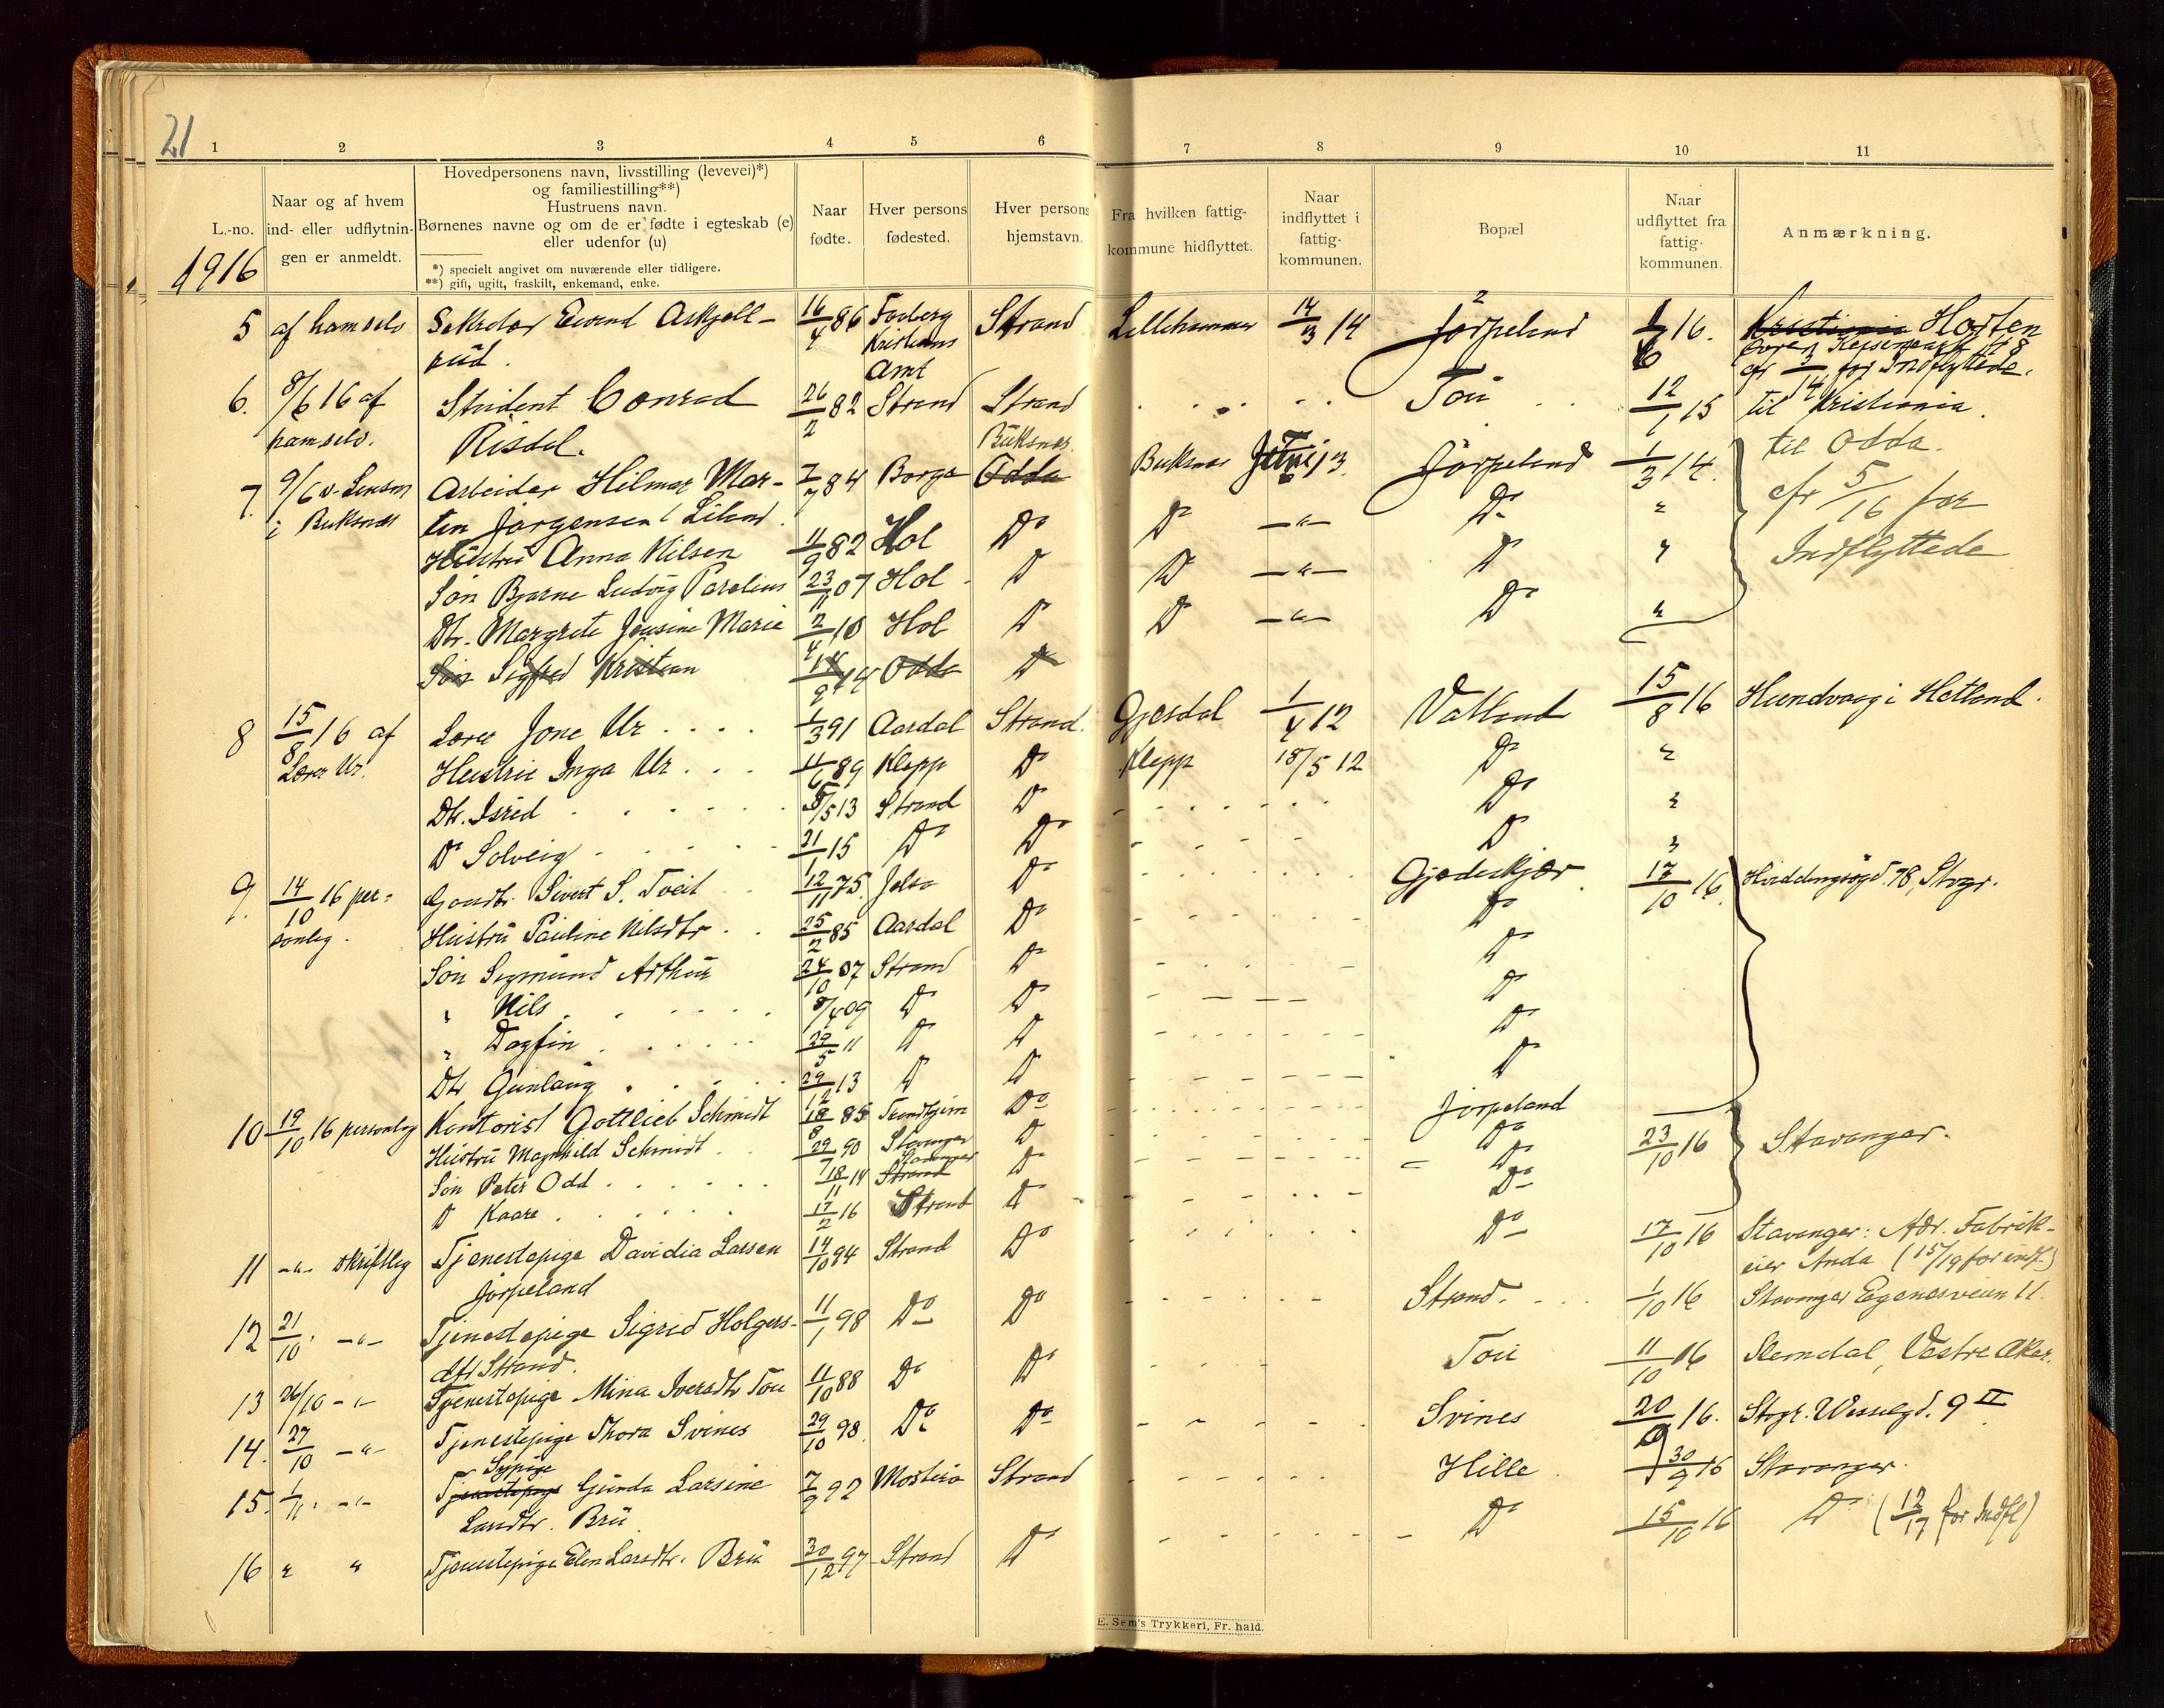 21
1 2 3 4 5 6 7 8 9 10 11
L.-no.
Naar og af hvem
ind- eller udflytnin-
gen er anmeldt.
Hovedpersonens navn, livsstilling (levevei)*)
og familiestilling**)
Hustruens navn.
Børnenes navne og om de er fødte i egteskab (e)
eller udenfor (u)
*) specielt angivet om nuværende eller tidligere.
**) gift, ugift, fraskilt, enkemand, enke.
Naar
fødte.
Hver persons
fødested.
Hver persons
hjemstavn.
Fra hvilken fattig-
kommune hidflyttet.
Naar
indflyttet i
fattig-
kommunen.
Bopæl
Naar
udflyttet fra
fattig-
kommunen.
Anmærkning.
1916
5 af ham selv Sekretær Eivind Askjell- 16/4 86 Faaberg Strand Lillehammer 14/3 14 Jørpeland 16. Kristiania Horten
rud. Kristians
Amt cfr 3/14 for Indflyttede.
6. 8/6 16 af Student Conrad 26/2 82 Strand Strand Tou 12/1 15 til Kristiania.
ham selv. Risdal. Buksnes
7. 9/6 v. Lensm Arbeider Hilmar Mar- 7/7 84 Borge Odda Buksnes 13. Jørpeland 1/3 14. til Odda.
i Buksnes ten Jørgensen Liland cfr 5/16 for
Hustru Anna Nilsen 11/9 82 Hol Do Do -"- Do " Indflyttede
Søn Bjarne Ludvig Parelius 23/11 07 Hol D D -"- D "
Dtr. Margrete Jensine Marie 2/4 10 Hol D D -"- Do "
Søn Sigfred Kristian 14/9 14 Odda D
8 15/8 16 af Lærer Jone Ur 1/3 91 Aardal Strand. Gjesdal 1/4 12 Vatland 15/8 16 Hundvaag i Hetland.
Lærer Ur. Hustru Inga Ur 11/6 89 Klepp Do Klepp 18/5 12 Do "
Dtr. Isrid 5/5 13 Strand D Do "
D Solveig 21/1 15 Do Do D "
9. 14/10 16 per- Gaardbr. Sivert S. Tveit 12/11 75. Jelsa Do Gjødeskjær 17/10 16. Hviddingsøgd. 78, Stvgr.
sonlig. Hustru Pauline Nilsdtr 25/2 85 Aardal Do Do
Søn Sigmund Arthur 24/10 07 Strand Do Do
" Nils 8/4 09 D Do Do
" Dagfin 29/5 11 D D Do
Dtr Gunlaug 29/12 13 D D D
10 19/10 16 personlig Kontorist Gottlieb Schmidt 18/8 85 Trondhjem Do Jørpeland
Hustru Magnhild Schmidt 29/7 90 Stavanger D Do 23/10 16 Stavanger.
Søn Peter Odd 18/11 14 Strand Stavanger Do Do
D Kaare 17/2 16 Strand D Do
11 -"- skriftlig Tjenestepige Davidia Larsen 14/10 94 Strand Do Do 17/10 16 Stavanger: Adr. Fabrik-
Jørpeland eier Anda (15/19 for indf.)
12 21/10. -"- Tjenestepige Sigrid Holgers- 11/1 98 Do Do Strand. 1/10 16 Stavanger Egenesveien 11.
dtr Strand.
13 26/10 -"- Tjenestepige Mina Iversdtr Tou 11/10 88 Do Do Tou 11/10 16 Slemdal, Vestre Aker.
14. 27/10 -"- Tjenestepige Thora Svines 29/10 98. Do Do Svines 20/9 16. Stvgr. Wesselgd. 9 II
Sypige
15. 1/11. -"- Tjenestepige Gunda Larsine 7/9 92 Mosterø Strand Hille 30/9 16 Stavanger.
Larsdtr. Bru
16 " " Tjenestepige Elen Larsdtr. Bru 30/12 97 Strand Do Do 15/10 16 D (12/17 for Indfl)
E. Sem's Trykkeri, Fr. hald.